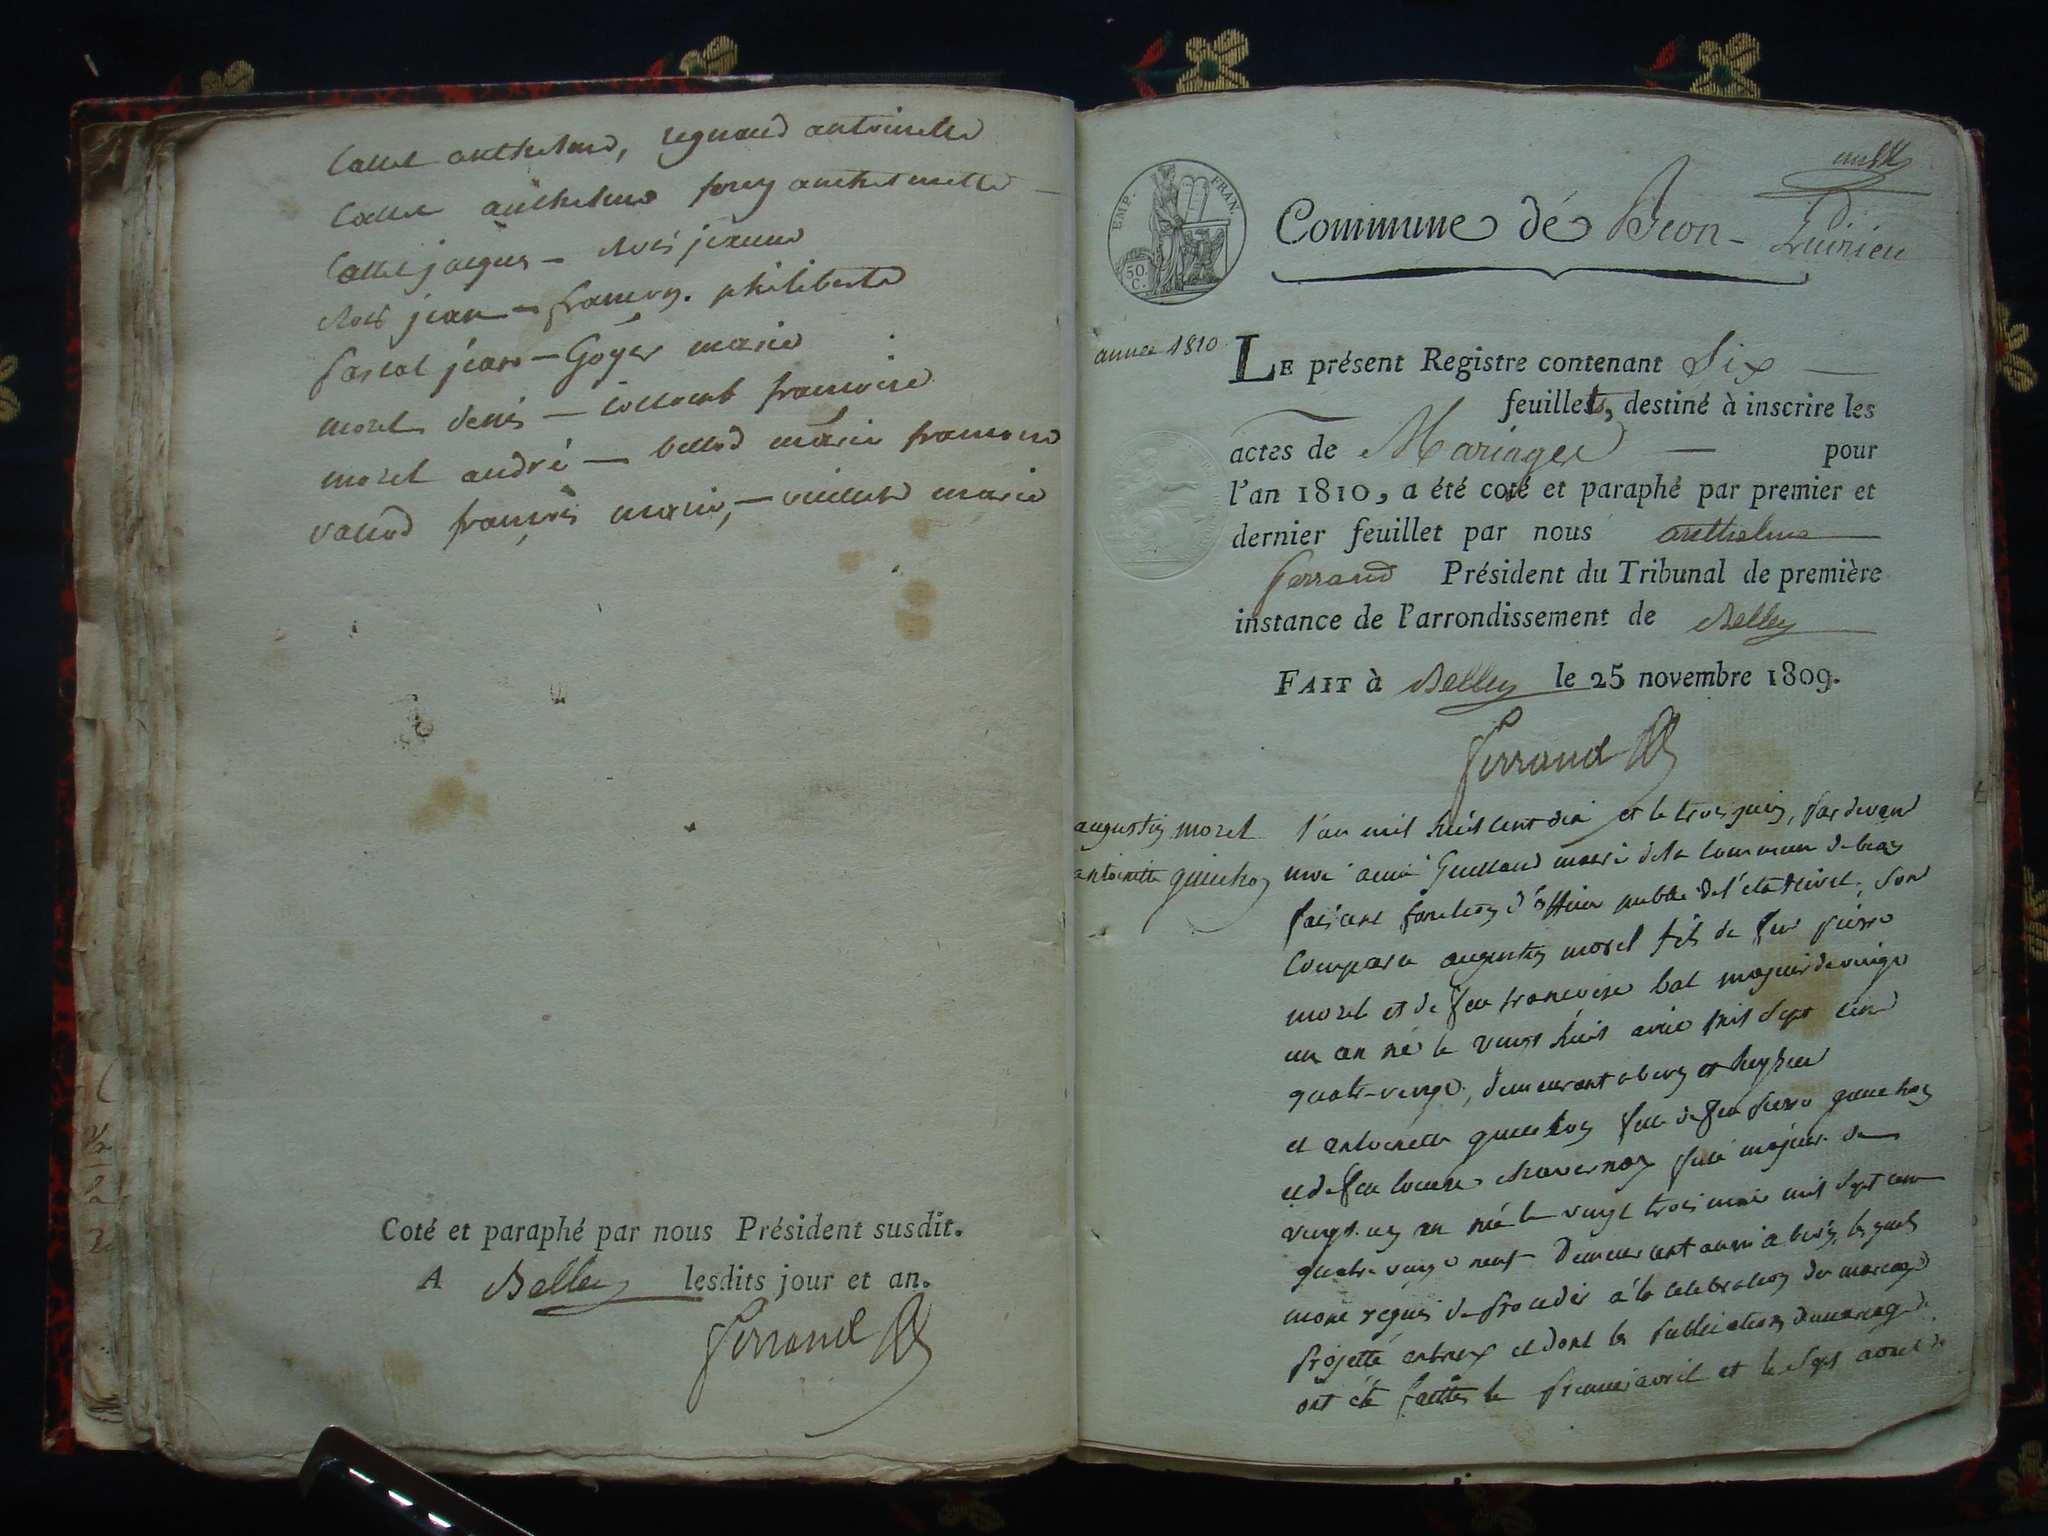 Callet anthelme, regnaud antoinette
Callet anthelme anthelmette
Callet jacques - rois jeanne
rois jean - francon. philiberte
pascal jean - Goyer marie
morel denis - collomb francoise
morel andré - bellod marie francoise
vallod françois marie, - marie
Coté et paraphé par nous Président susdit.
A Belley lesdits jour et an.
Ferrand
EMP. FRAN.
50. C.
Commune de Beon - Luirieu
année 1810
LE présent Registre contenant Six
feuillets, destiné à inscrire les
actes de Mariages pour
l'an 1810, a été coté et paraphé par premier et
dernier feuillet par nous anthelme
Ferrand Président du Tribunal de première
instance de l'arrondissement de Belley
FAIT à Belley le 25 novembre 1809.
Ferrand
augustin morel
antoinette guichon
l'an mil huit cent dix et le trois juin, par devant
moi aimé Guilland maire de la commune de beon
faisant fonction d'officier public de l'état civil, sont
comparu augustin morel fils de feu pierre
morel et de feu francoise bal majeur de vingt
un an né le vingt huit avril mil sept cent
quatre-vingt, demeurant a beon et
et antoinette guichon fille de feu pierre guichon
et de feu chavernoz fille majeur de
vingt un an né le vingt trois mai mil sept cent
quatre vingt neuf demeurant aussi a beon, lesquels
mont requis de proceder à la celebration du mariage
projetté entreux et dont les publications de mariage
ont été faittes le premier avril et le sept